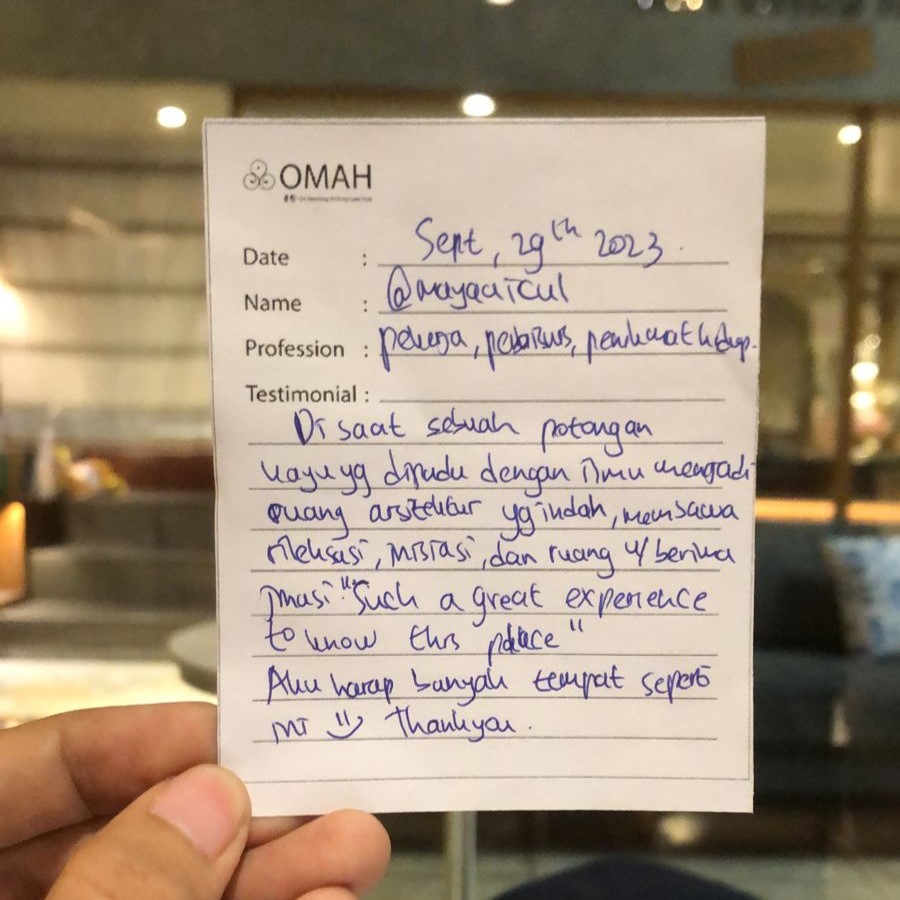 OMAH
Date : Sept, 29th 2023.
Name : @mayaaicul
Profession : pekerja, penikmat hidup.
Testimonial :
Di saat sebuah potongan
kayu yg dipadu dengan ilmu menjadi
ruang arsitektur yg indah, membawa
relaksasi, dan ruang u/ berima
jinasi. "Such a great experience
to know this place"
Aku harap banyak tempat seperti
ini Thankyou.